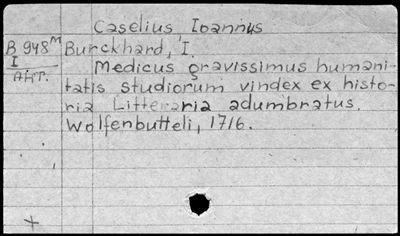 Caselius, Ioannus
B 948ᴹ Burckhard, I.
I
Afst. Medicus gravissimus humani-
tatis studiorum vindex ex histo-
ria Litteraria adumbratus.
Wolfenbutteli, 1716.